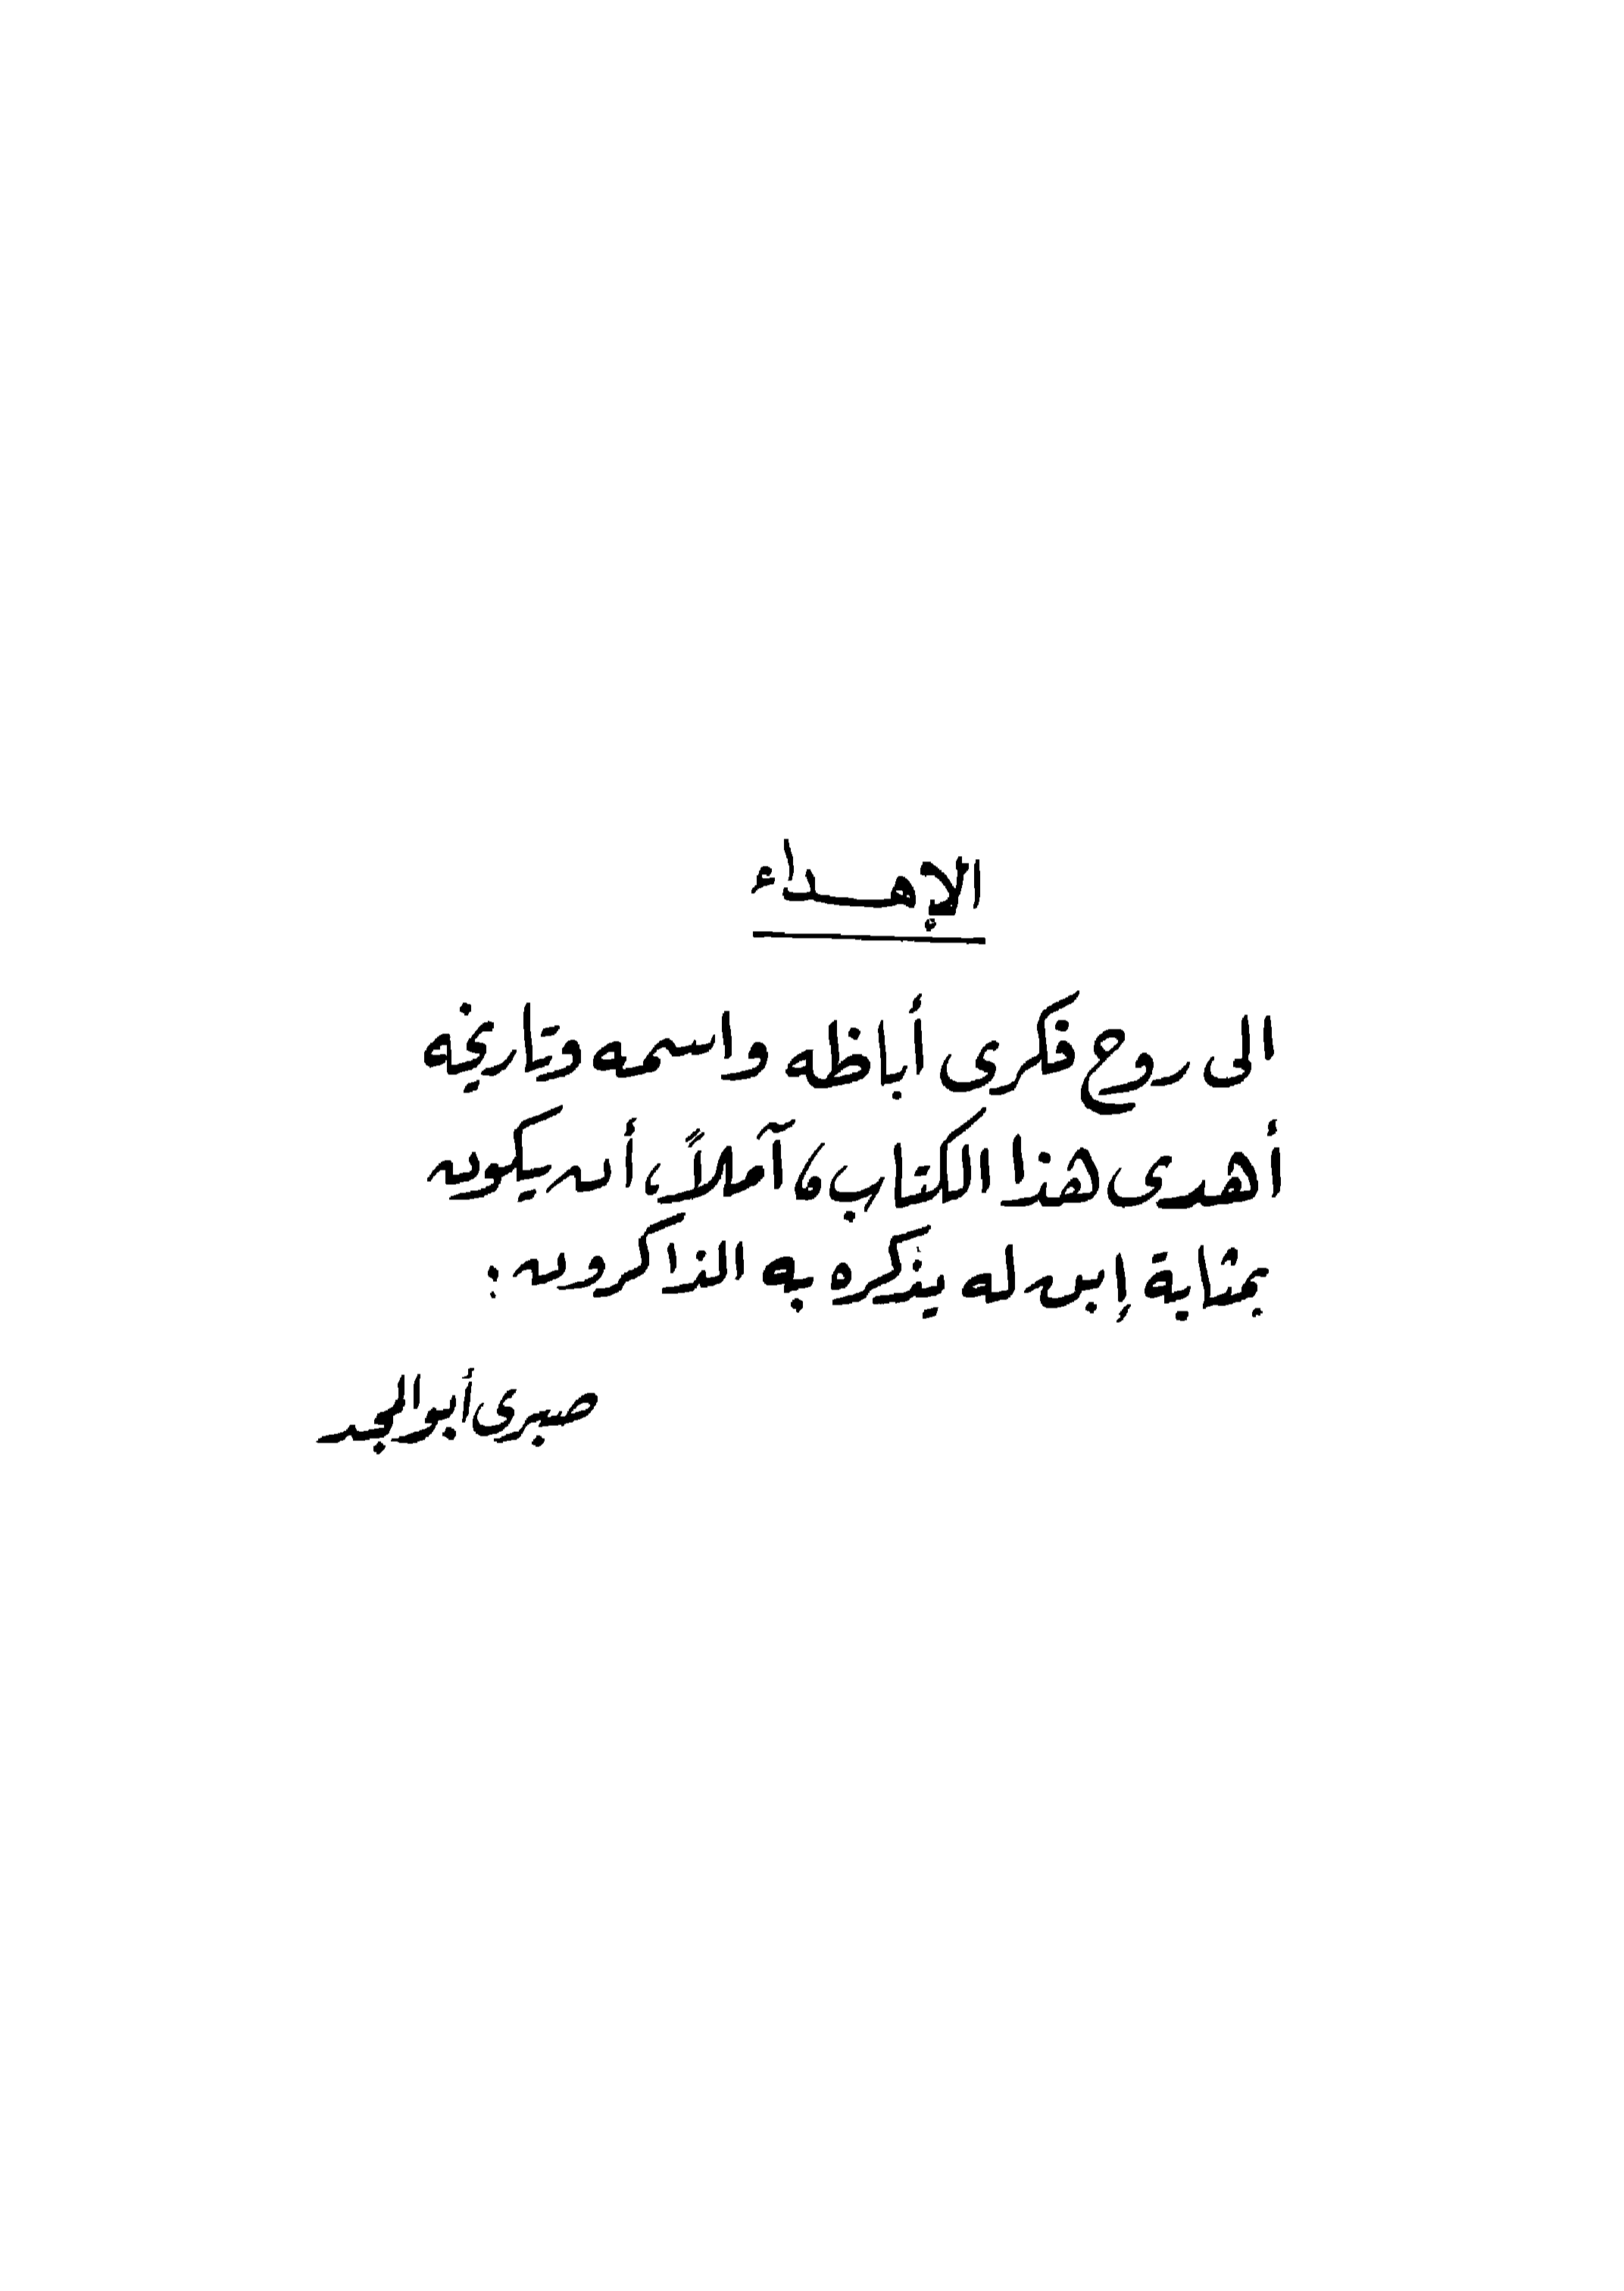 الإهداء
الى روح فكرى أباظه واسمه وتاريخه
أهدى هذا الكتاب، آملاً، أن يكون
بمثابة إبن له يذكره به الذاكرون :
صبرى أبو المجد